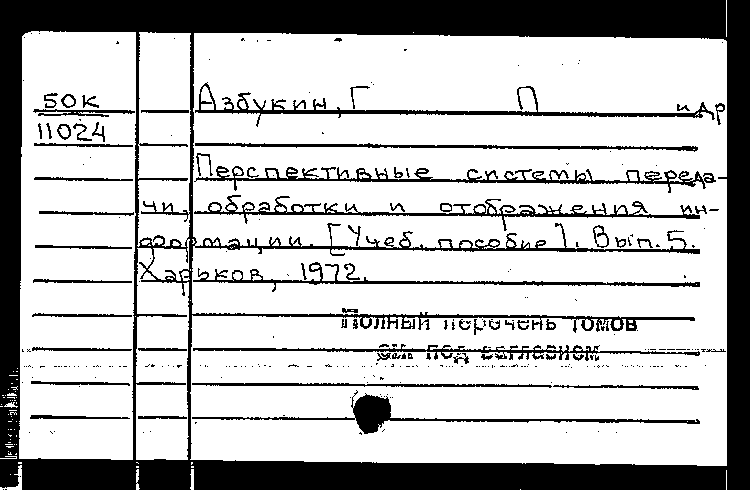 50К Азбукин, Г П и др
11024
Перспективные системы переда-
чи, обработки и отображения ин-
формации. [Учеб. пособие]. Вып. 5.
Харьков, 1972.
Полный перечень томов
см. под заглавием